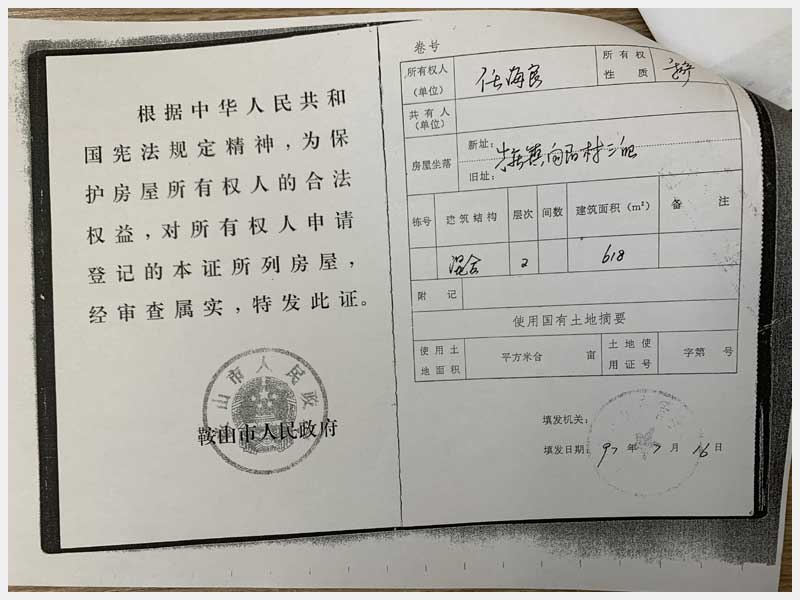 根据中华人民共和
国宪法规定精神，为保
护房屋所有权人的合法
权益，对所有权人申请
登记的本证所列房屋，
经审查属实，特发此证。
山市人民政
鞍山市人民政府
卷号
所有权人
（单位）
任海良
所有权
性质
共有人
（单位）
房屋坐落
新址：
旧址：
镇向阳村三组
栋号 建筑结构 层次 间数 建筑面积（m²） 备注
混合 2 618
附记
使用国有土地摘要
使用土
地面积
平方米合 亩
土地使
用证号
字第 号
填发机关：
填发日期：97年7月16日